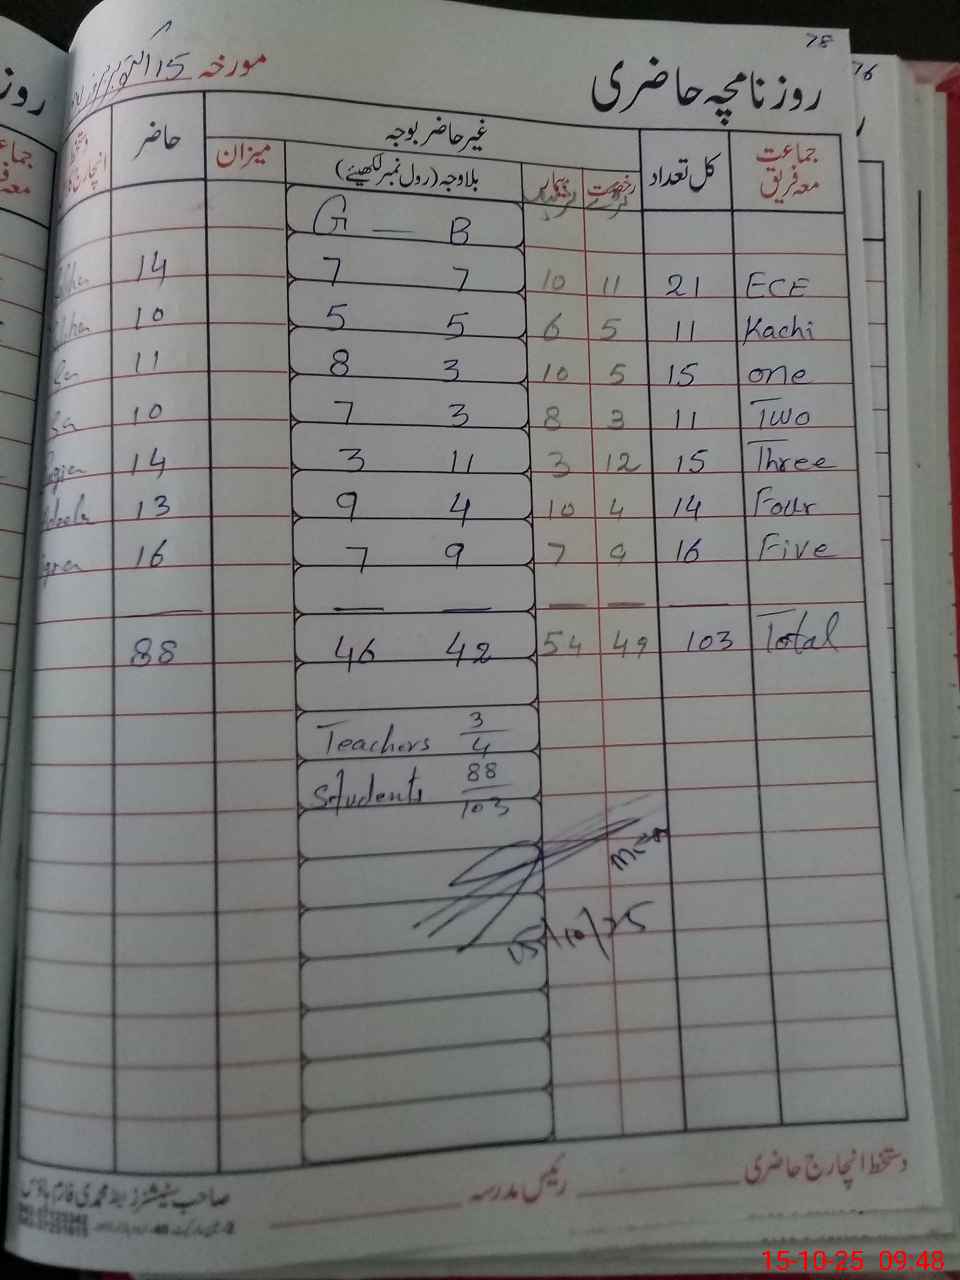 78
روزنامچہ حاضری
مورخہ 15 اکتوبر
جماعت معہ فریق کل تعداد غیر حاضر بوجہ حاضر
رخصت بیمار بلاوجہ (رول نمبر لکھیئے) میزان
G — B
ECE 21 11 10 7 7 14
Kachi 11 5 6 5 5 10
one 15 5 10 3 8 11
Two 11 3 8 3 7 10
Three 15 12 3 11 3 14
Four 14 4 10 4 9 13
Five 16 9 7 9 7 16
Total 103 49 54 42 46 88
Teachers 3/4
Students 88/103
15/10/25
دستخط انچارج حاضری رئیس مدرسہ
76
15-10-25 09:48